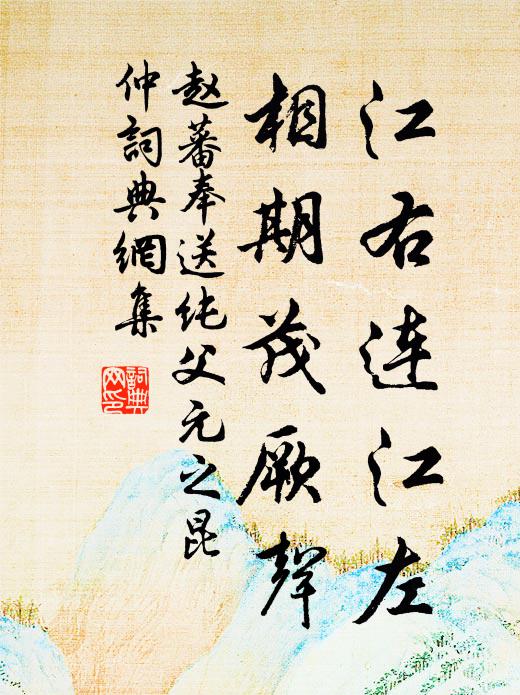 江右连江左
相期茂厥聲
赵蕃奉送纯父元之昆
仲詞典網集
詞典
网印